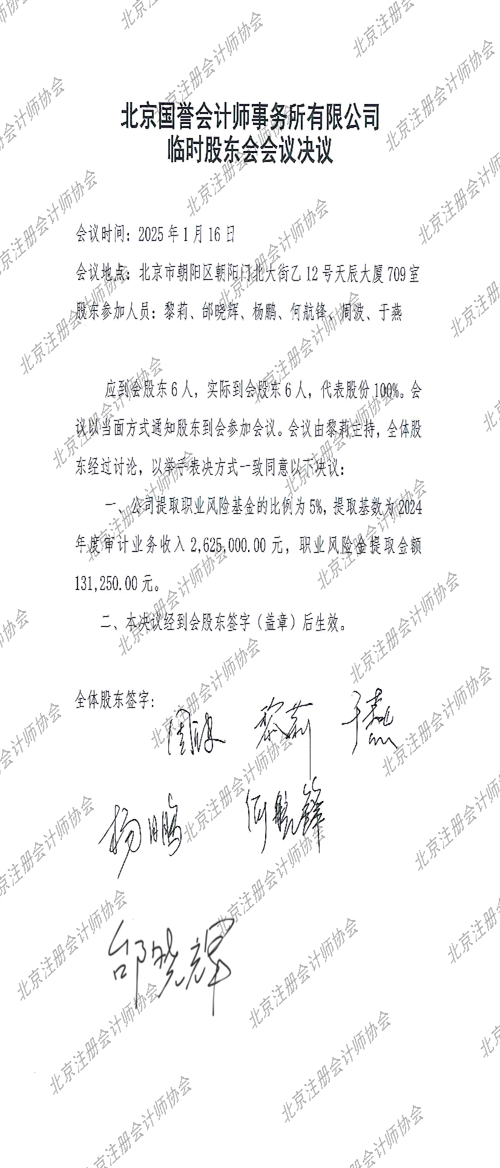 北京国誉会计师事务所有限公司
临时股东会会议决议
会议时间：2025年1月16日
会议地点：北京市朝阳区朝阳门北大街乙12号天辰大厦709室
股东参加人员：黎莉、邰晓辉、杨鹏、何航锋、周波、于燕
应到会股东6人，实际到会股东6人，代表股份100%。会
议以当面方式通知股东到会参加会议。会议由黎莉主持，全体股
东经过讨论，以举手表决方式一致同意以下决议：
一、公司提取职业风险基金的比例为5%，提取基数为2024
年度审计业务收入2,625,000.00元，职业风险金提取金额
131,250.00元。
二、本决议经到会股东签字（盖章）后生效。
全体股东签字:
周波 黎莉 于燕
杨鹏 何航锋
邰晓辉
北京注册会计师协会